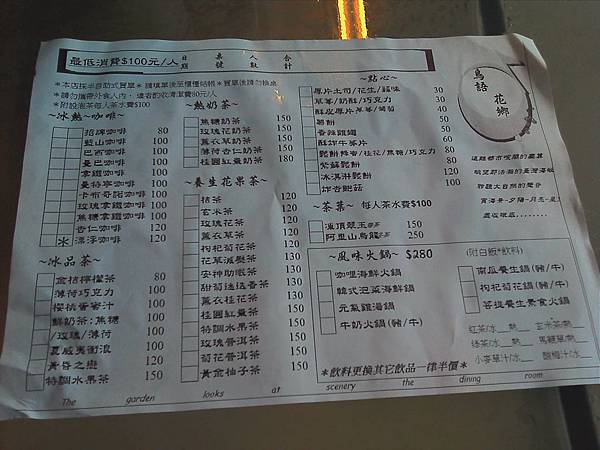 最低消費$100元/人 日期 桌號 人數 合計
＊本店採半自助式買單＊請填單後至櫃檯結帳＊買單後請勿換桌
＊請勿攜帶外食入內，違者酌收清潔費50元/人
＊附設泡茶每人茶水費$100
~冰熱~咖啡~
招牌咖啡 80
藍山咖啡 100
巴西咖啡 100
曼巴咖啡 100
拿鐵咖啡 100
曼特寧咖啡 100
卡布奇諾咖啡 100
玫瑰拿鐵咖啡 100
焦糖拿鐵咖啡 100
杏仁咖啡 120
冰 漂浮咖啡 120
~冰品茶~
金桔檸檬茶 80
薄荷巧克力 100
櫻桃蜜蜜汁 100
鮮奶茶:焦糖
/玫瑰/薄荷 100
夏威夷衝浪 100
黃昏之戀 120
特調水果茶 150
~熱奶茶~
焦糖奶茶 150
玫瑰花奶茶 150
薰衣草奶茶 150
薄荷杏仁奶茶 150
桂圓紅棗奶茶 180
~養生花果茶~
桔茶 120
玄米茶 120
玫瑰花茶 120
薰衣草茶 120
枸杞菊花茶 120
花草減壓茶 130
安神助眠茶 130
甜菊迷迭香茶 130
薰衣桂花茶 130
桂圓紅棗茶 130
特調水果茶 130
玫瑰普洱茶 130
菊花普洱茶 130
黃金柚子茶 150
~點心~
厚片土司/花生/蒜味 30
草莓/奶酥/巧克力 30
酥皮厚片草莓/葡萄 40
薯餅 30
香辣雞翅 50
酥炸牛蒡片 60
鬆餅蜂蜜/桂花/焦糖/巧克力 80
紫酥鬆餅 80
冰淇淋鬆餅 120
炸杏鮑菇 100
~茶葉~ 每人茶水費$100
凍頂翠玉 150
阿里山烏龍 250
~風味火鍋~ $280 (附白飯*飲料)
咖哩海鮮火鍋
韓式泡菜海鮮鍋
元氣雞湯鍋
牛奶火鍋(豬/牛)
南瓜養生鍋(豬/牛)
枸杞菊花鍋(豬/牛)
菩提養生素食火鍋
紅茶/冰__熱__ 玄米茶/熱
綠茶/冰__熱__ 馬鞭草/熱
小麥草汁/冰__ 酸梅汁/冰
＊飲料更換其它飲品一律半價＊
鳥語花鄉
遠離都市喧鬧的塵囂
聆聽大自然的聲音
賞海景~夕陽~月色~星
盡收眼底........
The garden looks at scenery the dining room